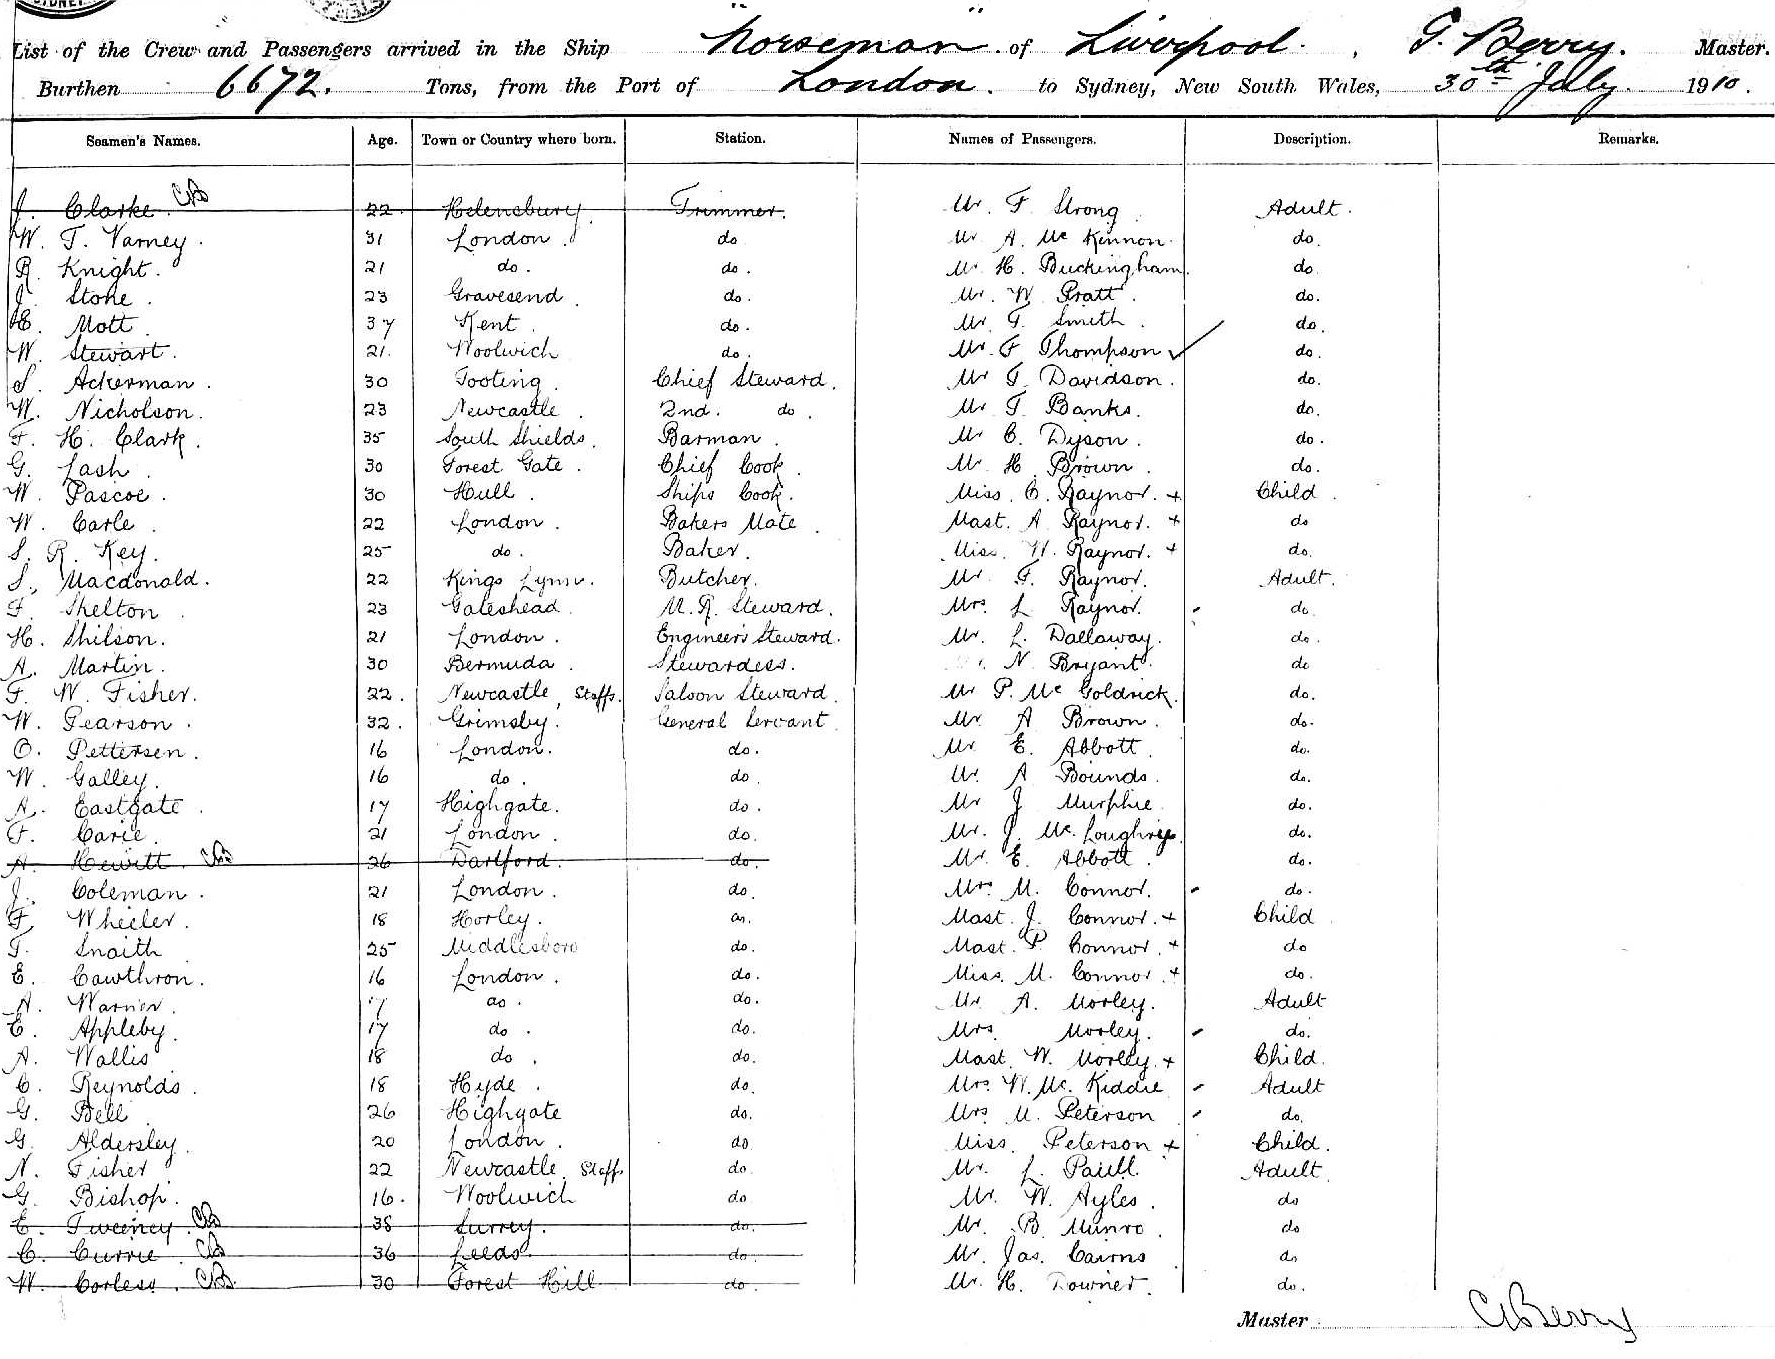 SYDNEY
List of the Crew and Passengers arrived in the Ship "Norseman" of Liverpool. , G. Berry. Master.
Burthen 6672. Tons, from the Port of London. to Sydney, New South Wales, 30th July. 1910.
Seamen's Names. Age. Town or Country where born. Station. Names of Passengers. Description. Remarks.
J. Clarke CB 22. Helensbury. Trimmer. Mr. F. Strong Adult.
W. T. Varney. 31 London. do Mr A. Mc Kinnon. do.
R. Knight. 21 do. do. Mr. H. Buckingham. do
J. Stone. 23 Gravesend. do. Mr. W. Pratt. do.
E. Mott 37 Kent. do. Mr. T. Smith. do.
W. Stewart. 21. Woolwich do. Mr. F Thompson do.
S. Ackerman. 30 Tooting. Chief Steward. Mr T. Davidson. do.
W. Nicholson. 23 Newcastle. 2nd. do. Mr. T. Banks. do.
F. H. Clark. 35 South Shields. Barman. Mr C. Dyson. do.
G. Lash. 30 Forest Gate. Chief Cook. Mr. H. Brown. do.
W. Pascoe. 30 Hull. Ships Cook. Miss. C. Raynor. + Child.
W. Carle. 22 London. Bakers Mate. Mast. A Raynor. + do
S. R. Key. 25 do. Baker. Miss. W. Raynor. + do.
S. Macdonald. 22 Kings Lynn. Butcher. Mr. F. Raynor. Adult.
F. Shelton 23 Gateshead. M. R. Steward. Mrs. L Raynor. do.
H. Shilson. 21 London. Engineers Steward. Mr. L. Dallaway. do.
A. Martin. 30 Bermuda. Stewardess. N. Bryant. do
F. W. Fisher. 22. Newcastle, Staffs. Saloon Steward. Mr P. Mc Goldrick. do.
W. Pearson. 32. Grimsby. General Servant. Mr. A Brown. do.
O. Pettersen. 16 London. do. Mr. E. Abbott. do.
W. Galley. 16 do. do. Mr. A Bounds. do.
A. Eastgate. 17 Highgate. do. Mr J Murphie. do.
F. Carie. 21 London. do. Mr. J. Mc. Loughrey. do.
A. Hewitt. CB 26 Dartford. do. Mr. E. Abbott. do.
J. Coleman. 21 London. do. Mrs M. Connor. do.
F. Wheeler. 18 Horley. do. Mast. J. Connor. + Child
T. Snaith 25 Middlesboro do. Mast. P. Connor. + do
E. Cawthron. 16 London. do. Miss. M. Connor. + do.
A. Warner. 17 do. do. Mr. A. Morley. Adult
E. Appleby. 17 do. do. Mrs Morley. do.
A. Wallis 18 do. do. Mast. W. Morley. + Child.
C. Reynolds. 18 Hyde. do. Mrs. W. Mc. Kiddie Adult
G. Bell. 26 Highgate do. Mrs M. Peterson do.
G. Aldersley. 20 London. do Miss. Peterson + Child.
N. Fisher 22 Newcastle, Staff. do. Mr. L. Paull. Adult.
G. Bishop. 16. Woolwich do Mr. W. Ayles. do
E. Tweeney. CB 38 Surrey. do. Mr. B. Munro. do
C. Currie CB 36 Leeds. do Mr. Jas. Cairns do
W. Corless. CB. 30 Forest Hill do. Mr. H. Downer. do.
Master CB Berry